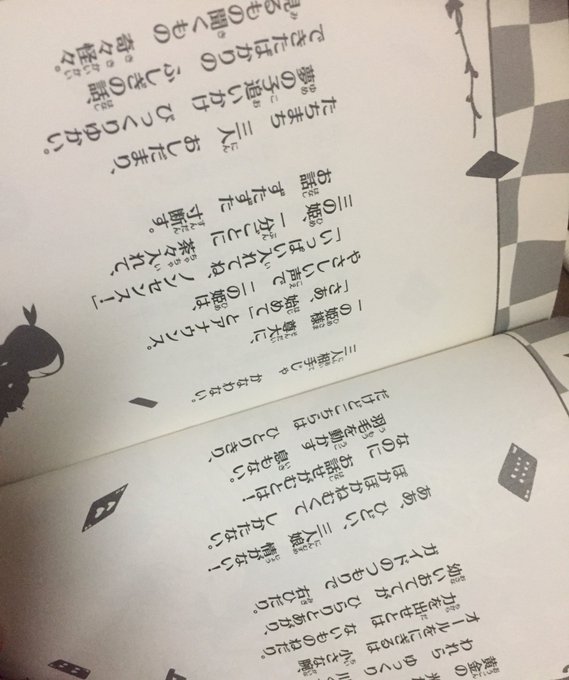 黄金の
われら ゆっくり
オールをにぎるは 小さな腕
力を出せとは ないものねだり。
幼いおててが ひらりとあがり、
ガイドのつもりで 右ひだり。
ああ、ひどい、三人娘 情がない!
ぽかぽかねむくて しかたない。
なのに お話せがむとは!
羽毛を動かす 息もない。
だけどこちらは ひとりきり、
三人相手じゃ かなわない。
一の姫様 尊大に、
「さあ、始めて」とアナウンス。
やさしい声で 二の姫は、
「いっぱい入れてね、ノンセンス!」
三の姫、一分ごとに 茶々入れて、
お話 ずたずた 寸断す。
たちまち 三人 おしだまり、
夢の子追いかけ びっくりゆかい。
できたばかりの ふしぎの話、
見るもの聞くもの 奇々怪々。